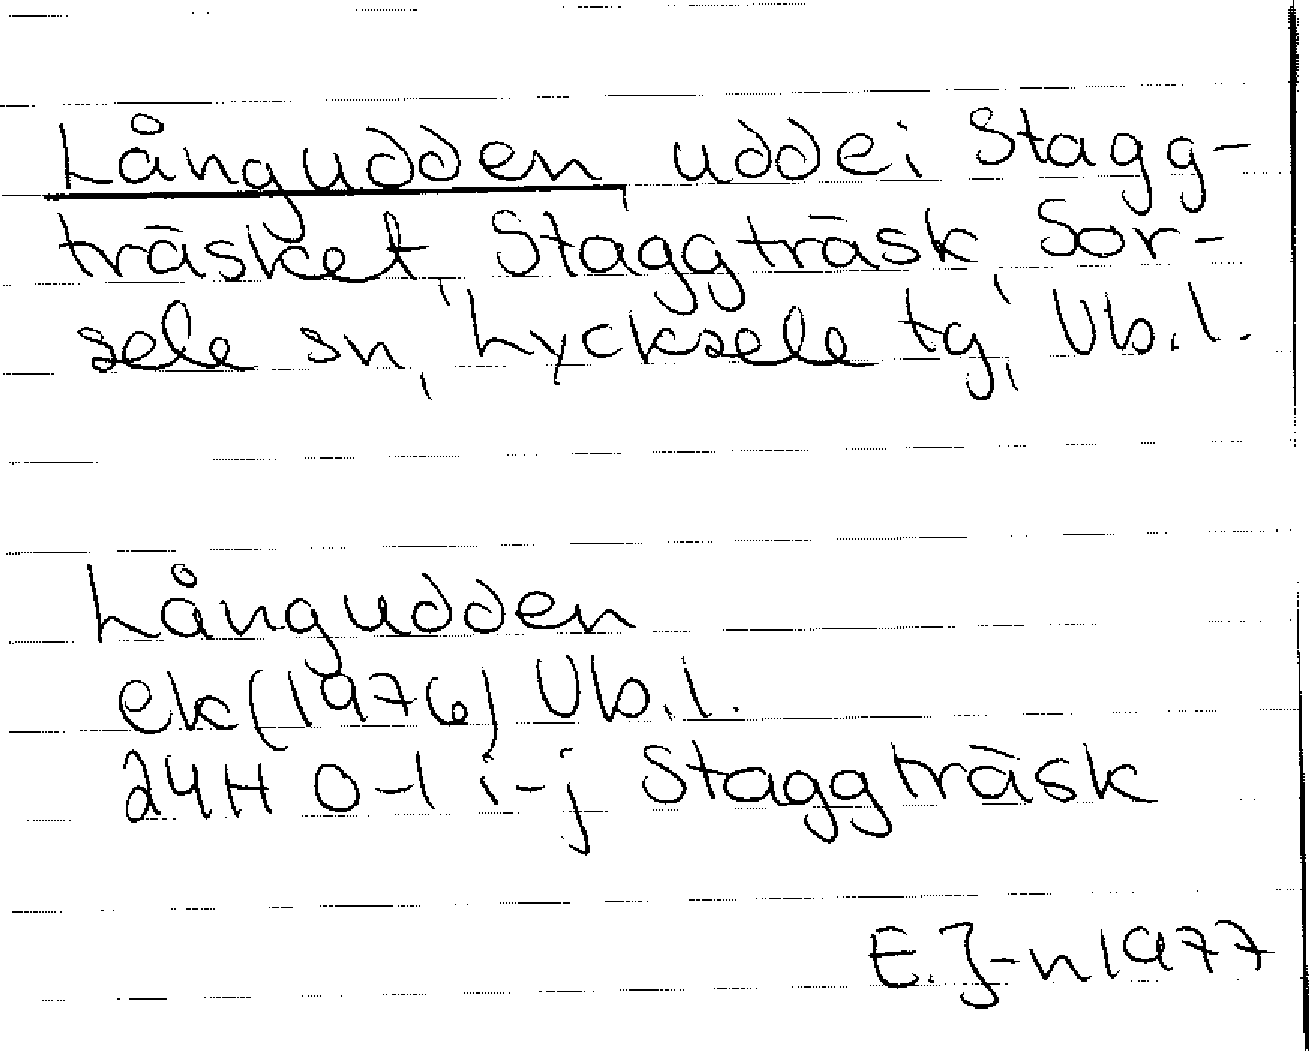 Långudden, udde i Stagg-
träsket, Staggträsk, Sor-
sele sn, Lycksele tg, Vb.l.
Långudden
ek(1976) Vb.l.
24H 0-1 i-j Staggträsk
E.J-n 1977